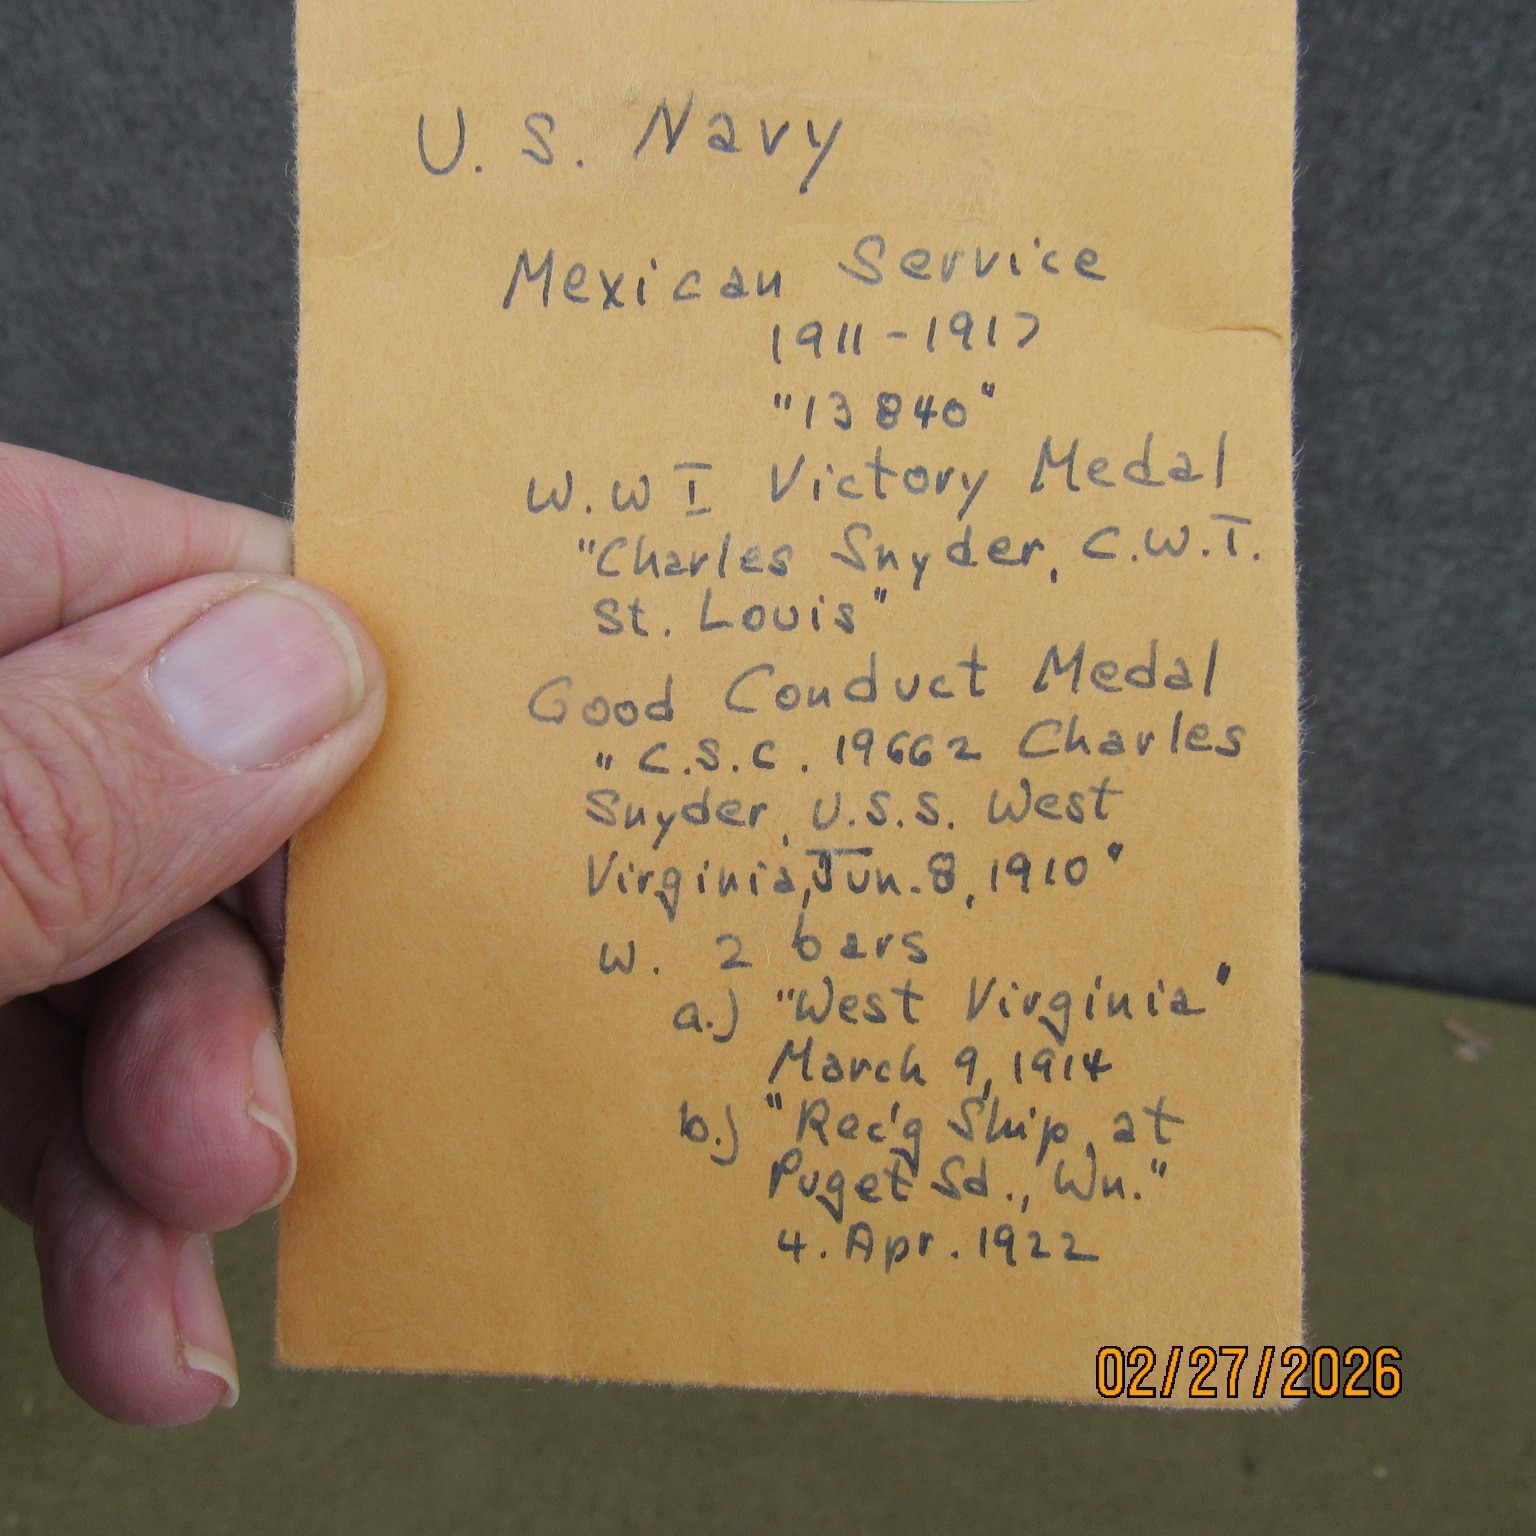 U. S. Navy
Mexican Service
1911-1917
"13840"
W.W I Victory Medal
"Charles Snyder, C.W.T.
St. Louis"
Good Conduct Medal
"C.S.C. 19662 Charles
Snyder, U.S.S. West
Virginia, Jun. 8, 1910"
w. 2 bars
a.) "West Virginia"
March 9, 1914
b.) "Rec'g Ship, at
Puget Sd., Wn."
4. Apr. 1922
02/27/2026